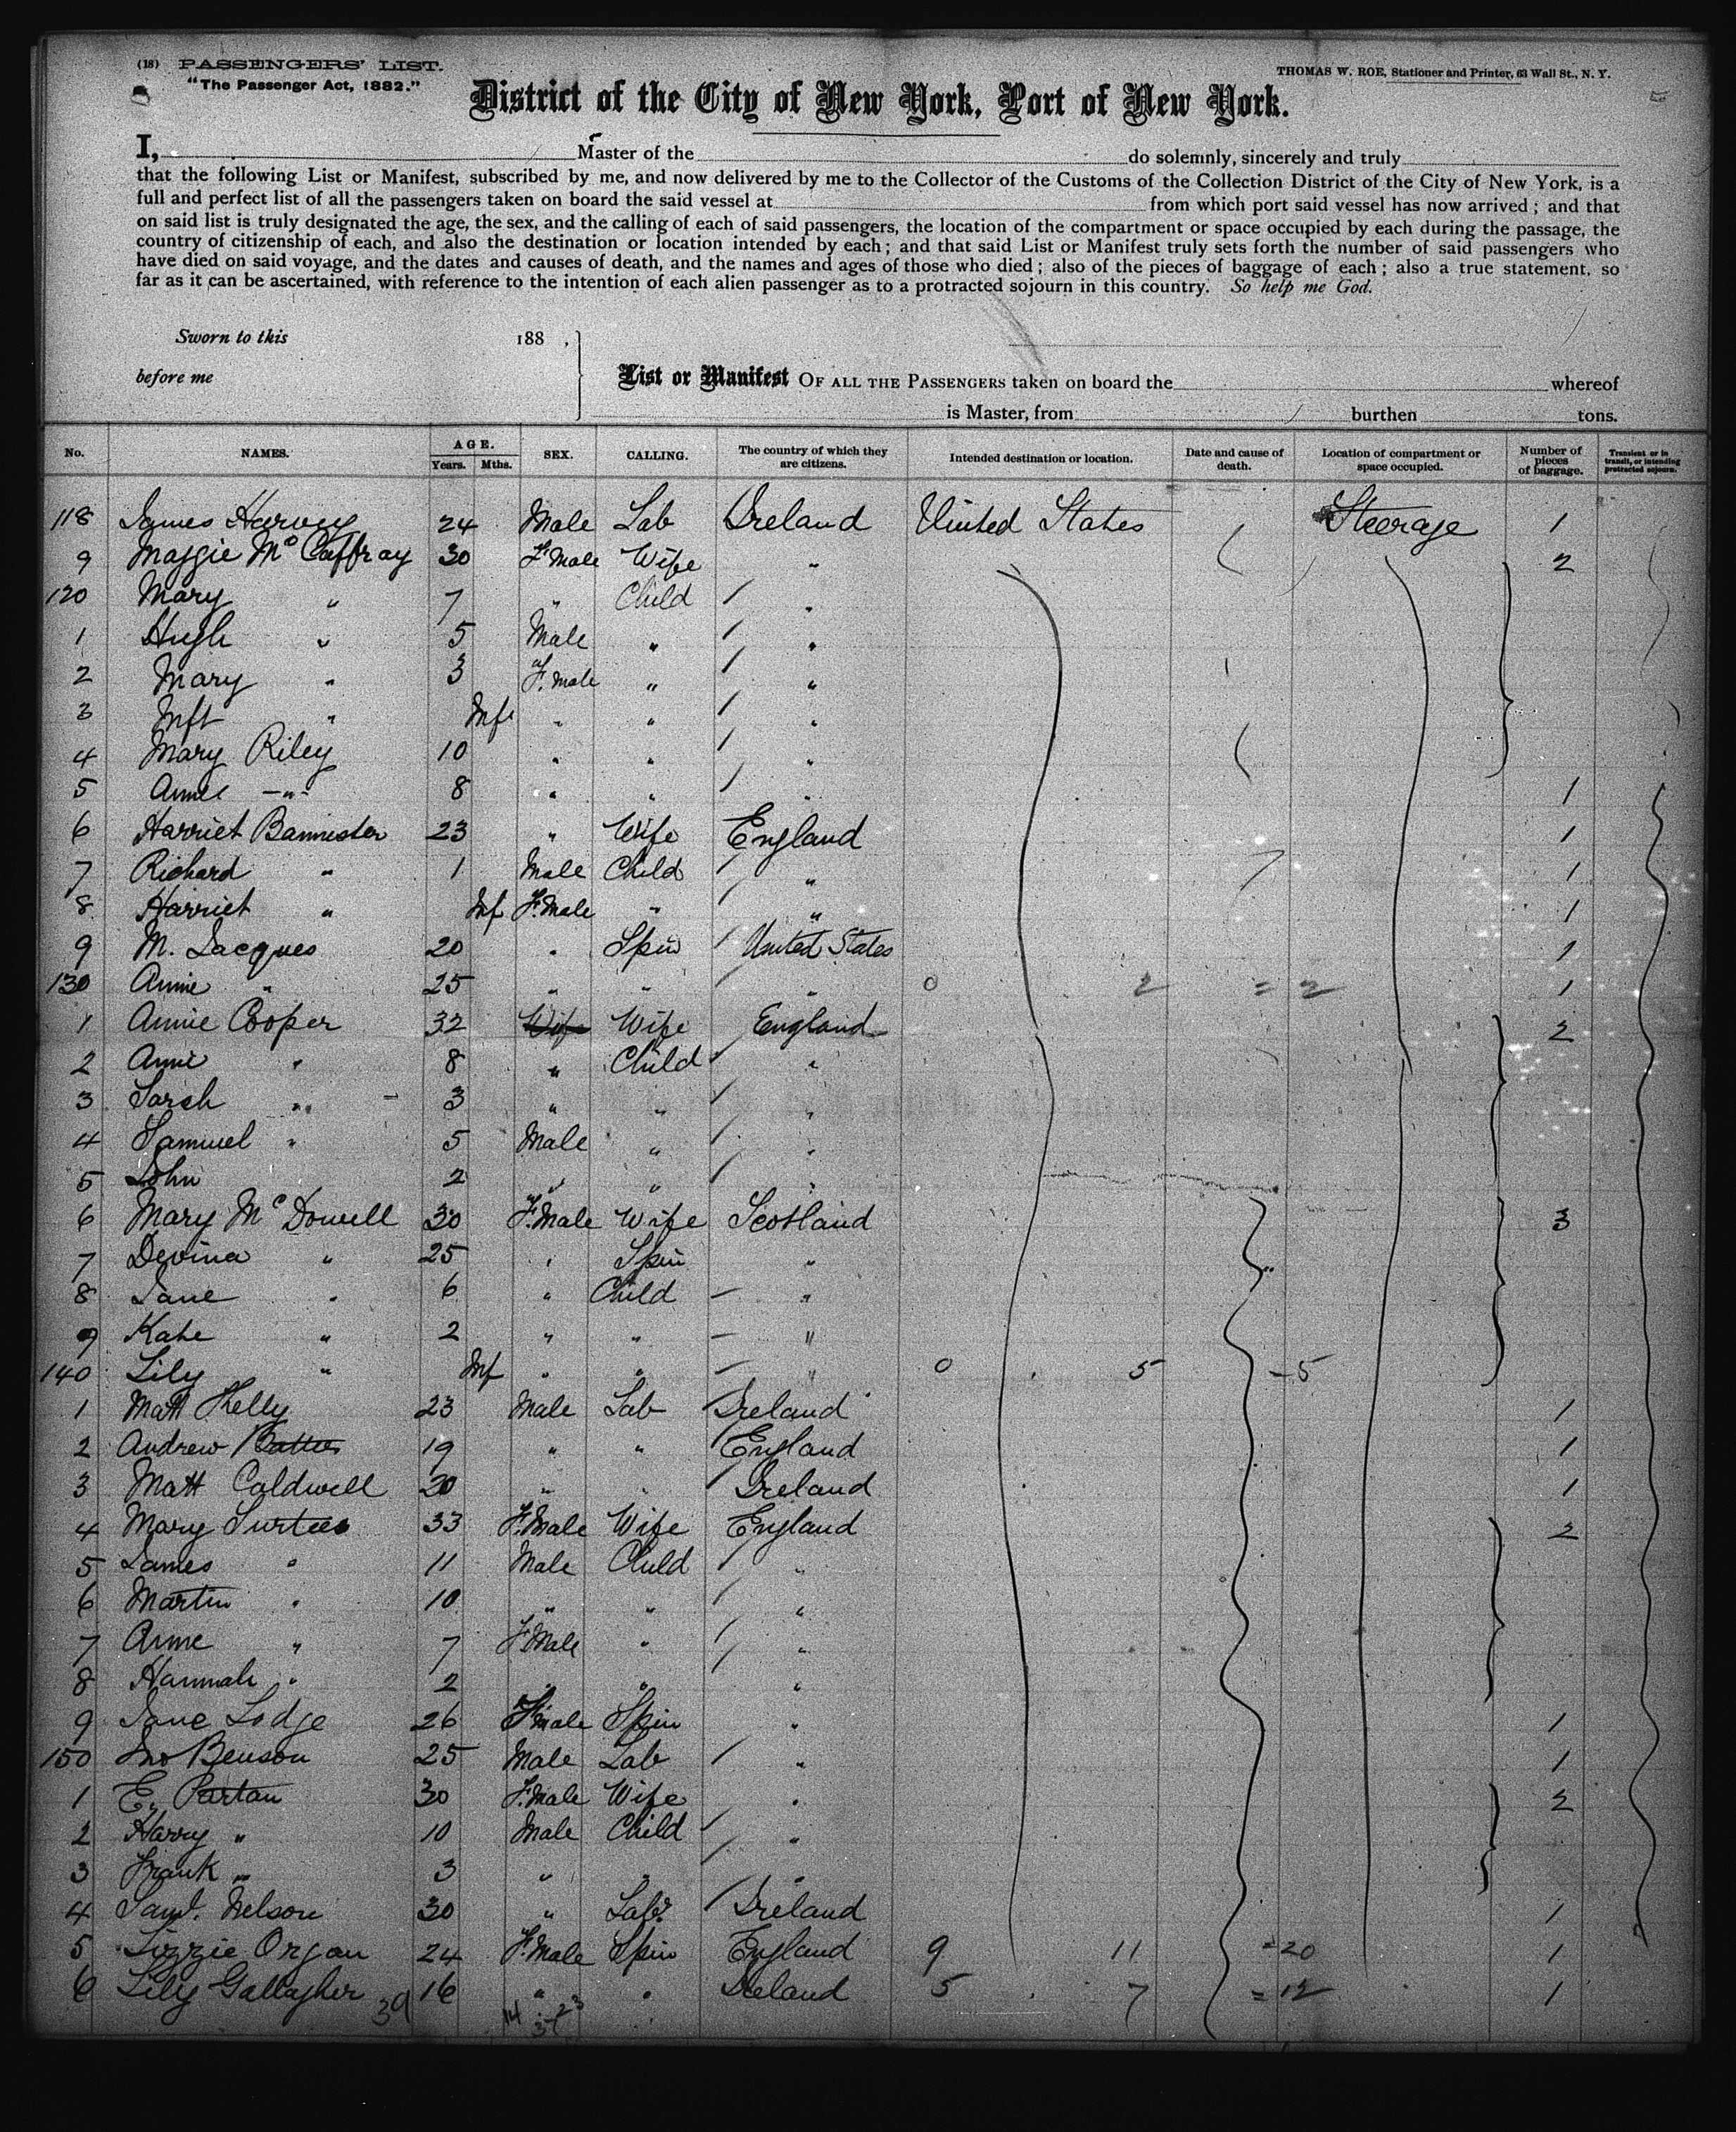 (18) PASSENGERS' LIST.
THOMAS W. ROE, Stationer and Printer, 63 Wall St., N. Y.
"The Passenger Act, 1882."
District of the City of New York, Port of New York.
I, Master of the do solemnly, sincerely and truly
that the following List or Manifest, subscribed by me, and now delivered by me to the Collector of the Customs of the Collection District of the City of New York, is a
full and perfect list of all the passengers taken on board the said vessel at from which port said vessel has now arrived; and that
on said list is truly designated the age, the sex, and the calling of each of said passengers, the location of the compartment or space occupied by each during the passage, the
country of citizenship of each, and also the destination or location intended by each; and that said List or Manifest truly sets forth the number of said passengers who
have died on said voyage, and the dates and causes of death, and the names and ages of those who died; also of the pieces of baggage of each; also a true statement, so
far as it can be ascertained, with reference to the intention of each alien passenger as to a protracted sojourn in this country. So help me God.
Sworn to this 188 ,
before me
List or Manifest OF ALL THE PASSENGERS taken on board the whereof
is Master, from burthen tons.
No. NAMES. AGE. Years. Mths. SEX. CALLING. The country of which they are citizens. Intended destination or location. Date and cause of death. Location of compartment or space occupied. Number of pieces of baggage. Transient or in transit, or intending protracted sojourn.
118 James Harvey 24 Male Lab Ireland United States Steerage 1
9 Maggie McCaffray 30 F.Male Wife " 2
120 Mary " 7 " Child / "
1 Hugh " 5 Male " / "
2 Mary " 3 F.male " / "
3 Inft " Inft " " / "
4 Mary Riley 10 " " / "
5 Annie -"- 8 " " / " 1
6 Harriet Bannister 23 " Wife England 1
7 Richard " 1 Male Child / " 1
8 Harriet " Inf F.Male " / " 1
9 M. Jacques 20 " Spin / United States 1
130 Annie " 25 " " / " 0 2 = 2 1
1 Annie Cooper 32 Wife Wife England 2
2 Annie " 8 " Child / "
3 Sarah " 3 " " / "
4 Samuel " 5 Male " / "
5 John 2 " " / "
6 Mary McDowell 30 F.Male Wife Scotland 3
7 Devina " 25 " Spin "
8 Jane " 6 " Child - "
9 Kate " 2 " " - "
140 Lily " Inf " " - " 0 5 - 5
1 Matt Kelly 23 Male Lab Ireland 1
2 Andrew 19 " " / England 1
3 Matt Caldwell 20 " " / Ireland 1
4 Mary Surtees 33 F.Male Wife England 2
5 James " 11 Male Child / "
6 Martin " 10 " " / "
7 Anne " 7 F.Male " / "
8 Hannah " 2 " " / "
9 Jane Lodge 26 F.male Spin "
150 Jno Benson 25 Male Lab / " 1
1 E. Partan 30 F.Male Wife " 2
2 Harry " 10 Male Child / "
3 Frank " 3 " " / "
4 Saml. Nelson 30 " Labr / Ireland 1
5 Lizzie Organ 24 F.Male Spin England 9 11 = 20 1
6 Lily Gallagher 16 " " Ireland 5 7 = 12 1
39 14 23